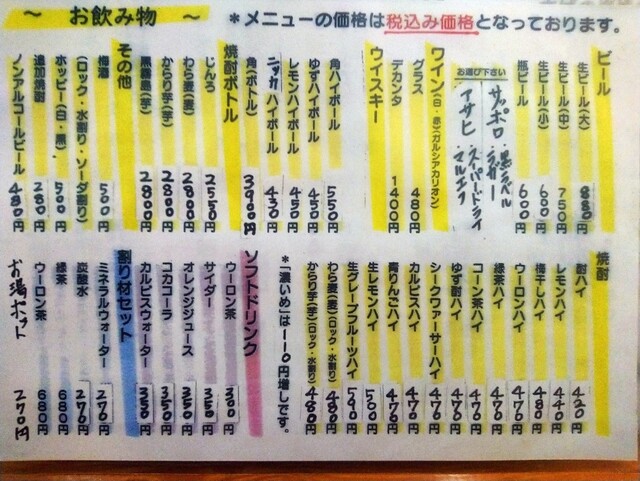 ～ お飲み物 ～
＊メニューの価格は税込み価格となっております。
ビール
生ビール(大) 880円
生ビール(中) 750円
生ビール(小) 600円
瓶ビール 600円
お選び下さい
サッポロ・黒ラベル・ラガー
アサヒ・スーパードライ・マルエフ
ワイン(白・赤)(ガルシアカリオン)
グラス 480円
デカンタ 1400円
ウイスキー
角ハイボール 550円
ゆずハイボール 450円
レモンハイボール 450円
ニッカハイボール 430円
角(ボトル) 3900円
焼酎ボトル
じんろ 2550円
わら麦(麦) 2800円
からり芋(芋) 2800円
黒霧島(芋) 2800円
その他
梅酒 500円
(ロック・水割り・ソーダ割り)
ホッピー(白・黒) 500円
追加焼酎 280円
ノンアルコールビール 480円
焼酎
酎ハイ 420円
レモンハイ 440円
梅干しハイ 480円
ウーロンハイ 470円
緑茶ハイ 470円
コーン茶ハイ 470円
ゆず酎ハイ 470円
シークワァーサーハイ 470円
カルピスハイ 470円
青りんごハイ 470円
生レモンハイ 500円
生グレープフルーツハイ 590円
わら麦(麦)(ロック・水割り) 480円
からり芋(芋)(ロック・水割り) 480円
＊「濃いめ」は一一〇円増しです。
ソフトドリンク
ウーロン茶 300円
サイダー 350円
オレンジジュース 350円
コカコーラ 350円
カルピスウォーター 350円
割り材セット
ミネラルウォーター 270円
炭酸水 270円
緑茶 680円
ウーロン茶 680円
お湯ポット 270円